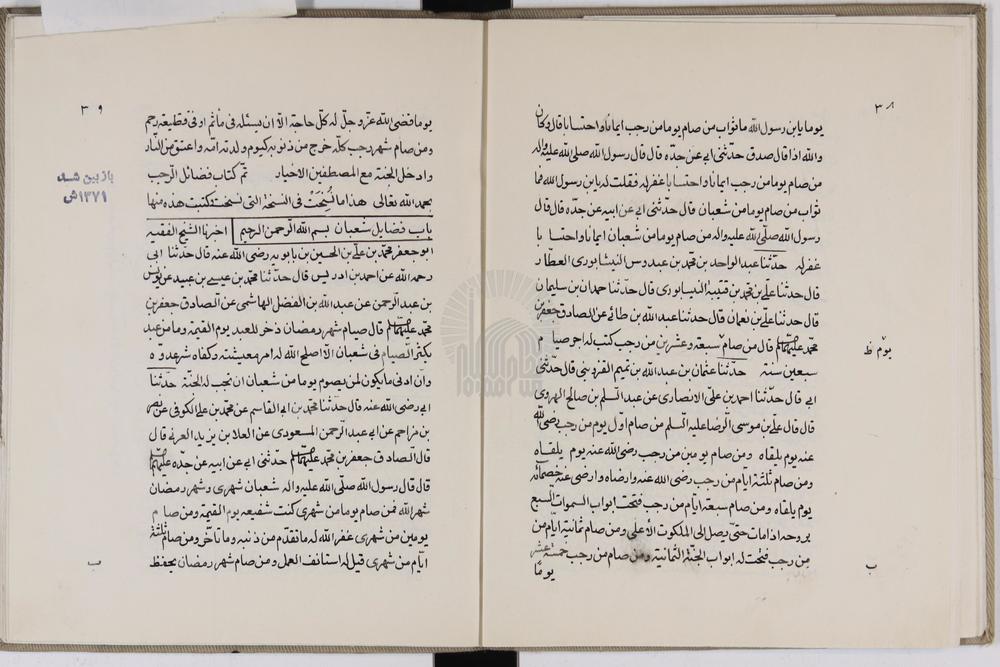 ٣٨
يوما يابن رسول الله ما ثواب من صام يوما من رجب ايمانا و احتسابا قال و كان
والله اذا قال صدق حدّثنى ابى عن جدّه قال قال رسول الله صلى الله عليه واله
من صام يوما من رجب ايمانا و احتسابا غفر له فقلت له يابن رسول الله فما
ثواب من صام يوما من شعبان قال حدّثنى ابى عن ابيه عن جدّه قال قال
رسول الله صلّى الله عليه واله من صام يوما من شعبان ايمانا و احتسا با
غفر له حدّثنا عبد الواحد بن محمد بن عبدوس النيشابورى العطار
قال حدثنا علّى بن محمد بن قتيبة النيسابورى قال حدثنا حمدان بن سليمان
قال حدثنا علّى بن نعمان قال حدّثنا عبد الله بن طائى عن الصادق جعفر بن
محمّد عليهما السلام قال من صام سبعة و عشرين من رجب كتب له اجر صيام
يوم ظ
سبعين سنة حدّثنا عثمان بن عبد الله بن تميم القزوينى قال حدّثنى
ابى قال حدّثنا احمد بن علّى الانصارى عن عبد السّلم بن صالح الهروى
قال قال علّى بن موسى الرضا عليه السّلم من صام اول يوم من رجب رضى الله
عنه يوم يلقاه و من صام يومين من رجب رضى الله عنه يوم يلقاه
و من صام ثلثة ايّام من رجب رضى الله عنه و ارضاه و ارضى عنه خصمائه
يوم يلقاه و من صام سبعة ايّام من رجب فتحت ابواب السموات السبع
بروحه اذا مات حتى يصل الى الملكوت الاعلى و من صام ثمانية ايام من
من رجب فتحت له ابواب الجنّة الثمانية و من صام من رجب خمسة عشر
يومًا
ب
٣٩
يوما قضى الله عزّ و جلّ له كلّ حاجة الّا ان يسئله فى مأثم او فى قطيعة رحم
و من صام شهر رجب كلّه خرج من ذنوبه كيوم ولدته امّه و اعتق من النّار
و ادخل الجنّة مع المصطفين الاخيار تمّ كتاب فضائل الرّجب
بازبين شد
١٣٧١ش
بحمد الله تعالى هذا ما نُسِخَتْ فى النسخة التى نسخت كتبت هذه منها
باب فضايل شعبان بسم الله الرّحمن الرّحيم اخبرنا الشّيخ الفقيه
ابو جعفر محمّد بن علّى بن الحسين بن بابويه رضى الله عنه قال حدّثنا ابى
رحمه الله عن احمد بن ادريس قال حدّثنا محمّد بن عيسى بن عبيد عن يونس
بن عبد الرّحمن عن عبد الله بن الفضل الهاشمى عن الصادق جعفر بن
محمّد عليهما السلام قال صيام شهر رمضان ذخر للعبد يوم القيمة و ما من عبد
يكثر الصّيام فى شعبان الّا اصلح الله له امر معيشته و كفاه شر عدوّه
و انّ ادنى ما يكون لمن يصوم يوما من شعبان ان تجب له الجنّة حدّثنا
ابى رضى الله عنه قال حدّثنا محمّد بن ابى القاسم عن محمّد بن على الكوفى عن نصر
بن مزاحم عن ابى عبد الرّحمن المسعودى عن العلا بن يزيد العرنى قال
قال الصادق جعفر بن محمد عليهما السلام حدّثنى ابى عن ابيه عن جدّه عليهم السلام
قال قال رسول الله صلّى الله عليه واله شعبان شهرى و شهر رمضان
شهر الله فمن صام يوما من شهرى كنت شفيعه يوم القيمة و من صام
يومين من شهرى غفر الله له ما تقدّم من ذنبه و ما تأخّر و من صام ثلثة
ايّام من شهرى قيل له استانف العمل و من صام شهر رمضان يحفظ
ب